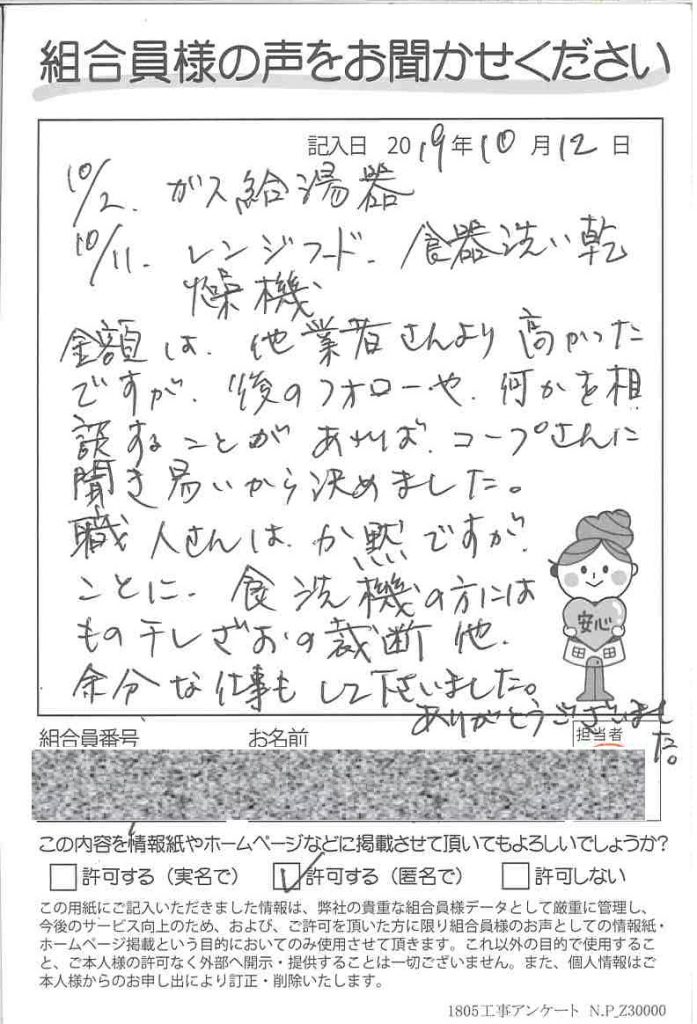 組合員様の声をお聞かせください
記入日 2019年10月12日
10/2. ガス給湯器
10/11. レンジフード、食器洗い乾
燥機
金額は、他業者さんより高かった
ですが、後のフォローや、何かを相
談することがあれば、コープさんに
聞き易いから決めました。
職人さんは、か黙ですが、
ことに、食洗機の方には
もの干しざおの裁断他、
余分な仕事もして下さいました。
ありがとうございまし
た。
安心
組合員番号 お名前 担当者
この内容を情報紙やホームページなどに掲載させて頂いてもよろしいでしょうか?
許可する(実名で) 許可する(匿名で) 許可しない
この用紙にご記入いただきました情報は、弊社の貴重な組合員様データとして厳重に管理し、
今後のサービス向上のため、および、ご許可を頂いた方に限り組合員様のお声としての情報紙・
ホームページ掲載という目的においてのみ使用させて頂きます。これ以外の目的で使用するこ
と、ご本人様の許可なく外部へ開示・提供することは一切ございません。また、個人情報はご
本人様からのお申し出により訂正・削除いたします。
1805工事アンケート N.P_Z30000